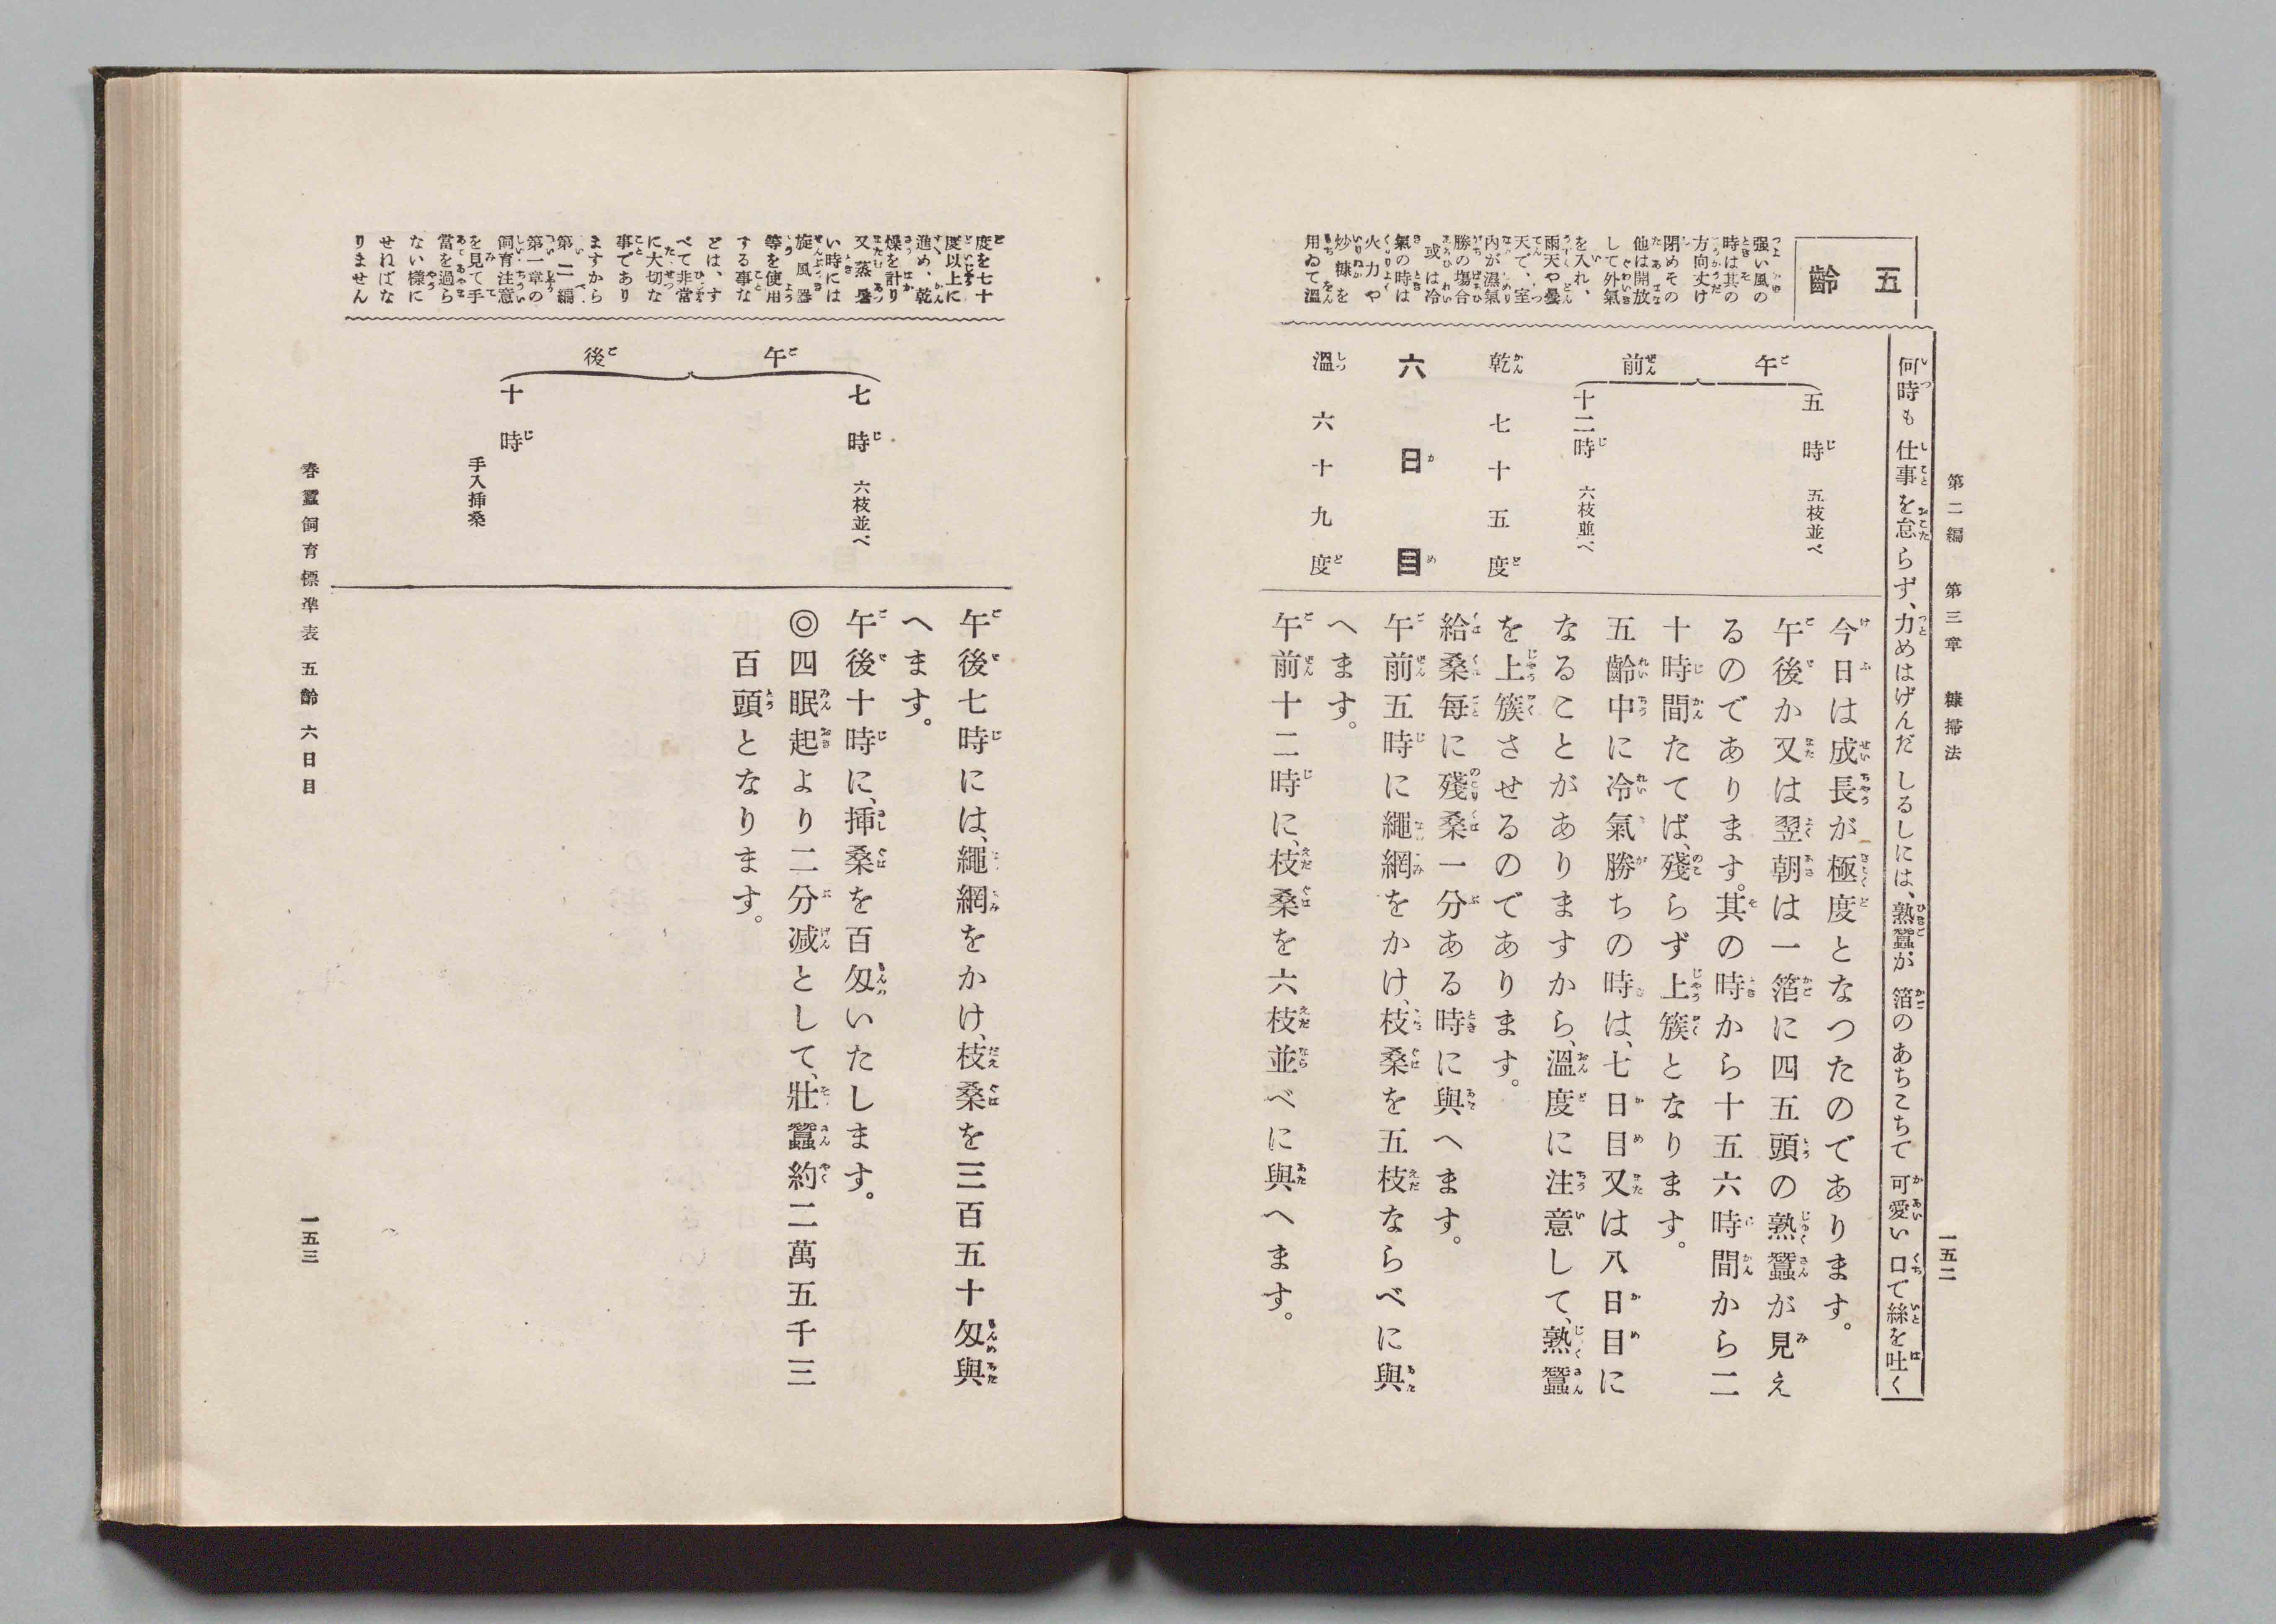 第二編 第三章 糠掃法
一五二
何時も仕事を怠らず、力めはげんだしるしには、熟蠶が箔のあちこちで可愛い口で絲を吐く
五齡
强い風の
時は其の
方向丈け
閉めその
他は開放
して外氣
を入れ、
雨天や曇
天で、室
內が濕氣
勝の場合
或は冷
氣の時は
火力や
炒糠を
用ゐて溫
午前
五時 五枝並べ
十二時 六枝並べ
乾 七十五度
六日目
溫 六十九度
今日は成長が極度となつたのであります。
午後か又は翌朝は一箔に四五頭の熟蠶が見え
るのであります。其の時から十五六時間から二
十時間たてば、殘らず上簇となります。
五齡中に冷氣勝ちの時は、七日目又は八日目に
なることがありますから、溫度に注意して、熟蠶
を上簇させるのであります。
給桑每に殘桑一分ある時に與へます。
午前五時に繩網をかけ、枝桑を五枝ならべに與
へます。
午前十二時に、枝桑を六枝並べに與へます。
度を七十
度以上に
進め、乾
燥を計り
又蒸暑
い時には
旋風器
等を使用
する事な
どは、す
べて非常
に大切な
事であり
ますから
第二編
第一章の
飼育注意
を見て手
當を過ら
ない樣に
せねばな
りません
午後
七時 六枝並べ
十時
手入挿桑
午後七時には、繩網をかけ、枝桑を三百五十匁與
へます。
午後十時に、挿桑を百匁いたします。
◎四眠起より二分減として、壯蠶約二萬五千三
百頭となります。
春蠶飼育標準表 五齡 六日目
一五三